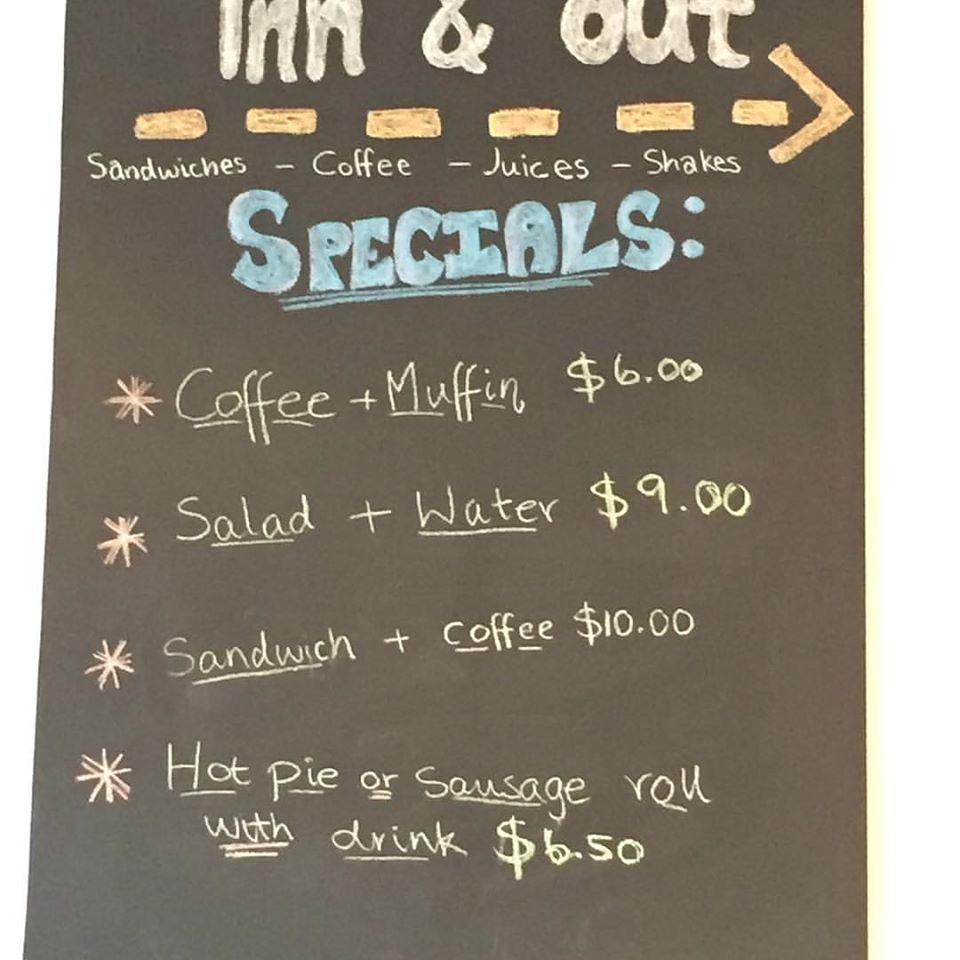 Inn & Out
Sandwiches - Coffee - Juices - Shakes
SPECIALS:
Coffee + Muffin $6.00
Salad + Water $9.00
Sandwich + coffee $10.00
Hot pie or sausage roll
with drink $6.50